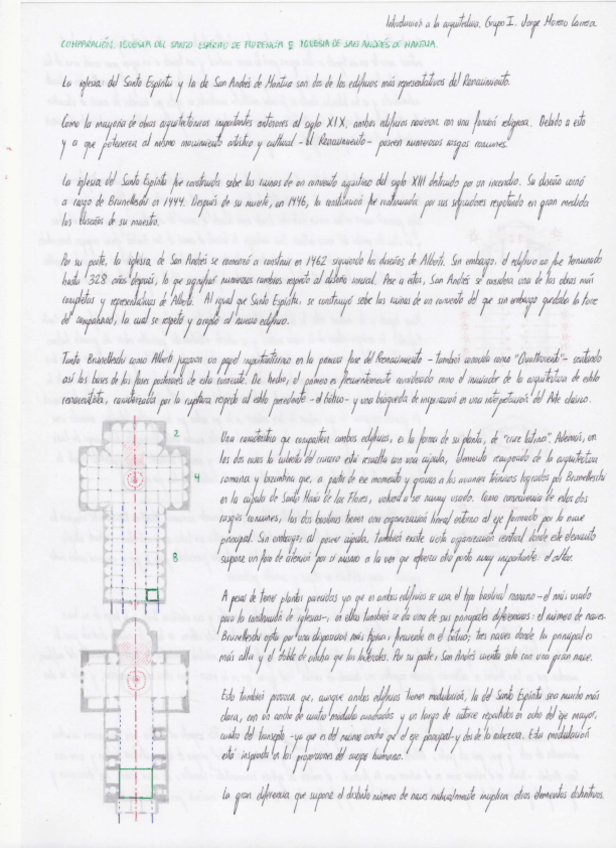 Introducción a la arquitectura. Grupo I. Jorge Moreno
COMPARACIÓN. IGLESIA DEL SANTO ESPÍRITU DE FLORENCIA E IGLESIA DE SAN ANDRÉS DE MANTUA.
La iglesia del Santo Espíritu y la de San Andrés de Mantua son dos de los edificios más representativos del Renacimiento.
Como la mayoría de obras arquitectónicas importantes anteriores al siglo XIX, ambos edificios nacieron con una función religiosa. Debido a esto
y a que pertenecen al mismo movimiento artístico y cultural -el Renacimiento- poseen numerosos rasgos comunes.
La iglesia del Santo Espíritu fue construida sobre las ruinas de un convento agustino del siglo XIII destruido por un incendio. Su diseño corrió
a cargo de Brunelleschi en 1444. Después de su muerte, en 1446, la construcción fue continuada por sus seguidores respetando en gran medida
los diseños de su maestro.
Por su parte, la iglesia de San Andrés se comenzó a construir en 1462 siguiendo los diseños de Alberti. Sin embargo, el edificio no fue terminado
hasta 328 años después, lo que significó numerosos cambios respecto al diseño inicial. Pese a estos, San Andrés se considera una de las obras más
completas y representativas de Alberti. Al igual que Santo Espíritu, se construyó sobre las ruinas de un convento del que sin embargo quedaba la torre
del campanario, la cual se respetó y amplió al nuevo edificio.
Tanto Brunelleschi como Alberti jugaron un papel importantísimo en la primera fase del Renacimiento -también conocida como "Quattrocento"- sentando
así las bases de las fases posteriores de esta corriente. De hecho, el primero es frecuentemente considerado como el iniciador de la arquitectura de estilo
renacentista, caracterizada por la ruptura respecto al estilo precedente -el Gótico- y una búsqueda de inspiración en una interpretación del Arte clásico.
2
4
8
Una característica que comparten ambos edificios, es la forma de su planta, de "cruz latina". Además, en
los dos casos la cubierta del crucero está resuelta con una cúpula, elemento recuperado de la arquitectura
romana y bizantina que, a partir de ese momento y gracias a los avances técnicos logrados por Brunelleschi
en la cúpula de Santa María de las Flores, volverá a ser muy usado. Como consecuencia de estos dos
rasgos comunes, las dos basílicas tienen una organización lineal entorno al eje formado por la nave
principal. Sin embargo, al poseer cúpula, también existe cierta organización central donde este elemento
supone un foco de atención por sí mismo a la vez que refuerza otro punto muy importante: el altar.
A pesar de tener plantas parecidas ya que en ambos edificios se usa el tipo basilical romano -el más usado
para la construcción de iglesias-, en ellas también se da una de sus principales diferencias: el número de naves.
Brunelleschi opta por una disposición más típica, frecuente en el Gótico; tres naves donde la principal es
más alta y el doble de ancha que las laterales. Por su parte, San Andrés cuenta solo con una gran nave.
Esto también provoca que, aunque ambos edificios tienen modulación, la del Santo Espíritu sea mucho más
clara, con un ancho de cuatro módulos cuadrados y un largo de catorce repartidos en ocho del eje mayor,
cuatro del transepto -ya que es del mismo ancho que el eje principal- y dos de la cabecera. Esta modulación
está inspirada en las proporciones del cuerpo humano.
La gran diferencia que supone el distinto número de naves naturalmente implica otros elementos distintivos.